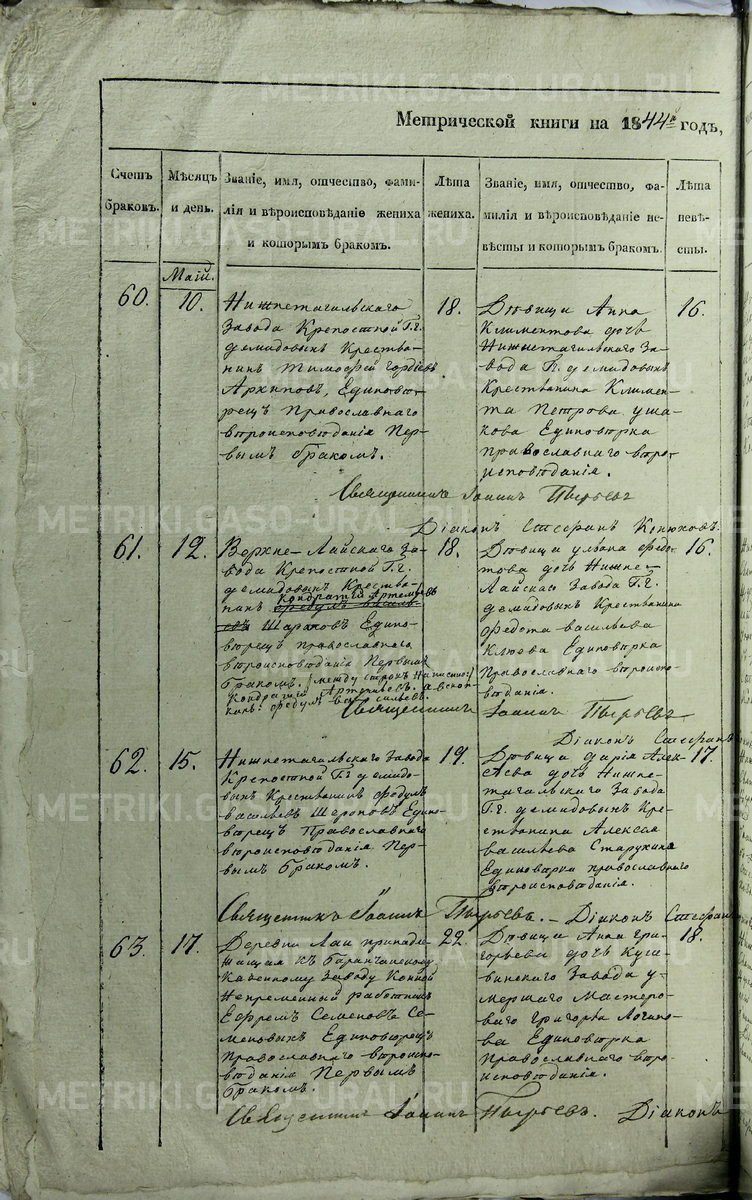 METRIKI.GASO-URAL.RU
Метрической книги на 1844й годъ,
Счетъ браковъ.
Мѣсяцъ и день.
Званіе, имя, отчество, фами-
лія и вѣроисповѣданіе жениха
и которымъ бракомъ.
Лѣта жениха.
Званіе, имя, отчество, фа-
милія и вѣроисповѣданіе не-
вѣсты и которымъ бракомъ.
Лѣта невѣ-
сты.
Маій.
60.
10.
Нижнетагильскаго
завода Крепостной Г.г.
демидовыхъ Крестья-
нинъ Тимофей гордѣевъ
Архиповъ, Единовѣ-
рецъ Православнаго
вѣроисповѣданія Пер-
вымъ бракомъ.
18.
Дѣвица Анна
Климентова дочь
Нижнетагильскаго За-
вода Г.г. демидовыхъ
Крестьянина Климен-
та Петрова уша-
кова Единовѣрка
православнаго вѣро-
исповѣданія.
16.
Священникъ Іоаннъ Пырьевъ
Діаконъ Стефанъ Конюховъ.
61.
12.
Верхне-Лайскаго За-
вода Крепостной Г.г.
демидовыхъ Крестья-
нинъ Кондратій Артемьевъ
Федулъ василь-
евъ Шараповъ Едино-
вѣрецъ православнаго
вѣроисповѣданія Первымъ
бракомъ. /между строкъ Написано:/
Кондратій Артемьевъ. а
Федулъ васильевъ.
18.
Дѣвица улiана Федо-
това дочь Нижне-
Лайскаго Завода Г.г.
демидовыхъ Крестьянина
Федота васильева
Клюева Единовѣрка
Православнаго вѣроиспо-
вѣданія.
16.
Священникъ Іоаннъ Пырьевъ
Діаконъ Стефанъ
62.
15.
Нижнетагильскаго Завода
Крепостной Г.г. демидо-
выхъ Крестьянинъ Федулъ
васильевъ Шероповъ Едино-
вѣрецъ Православнаго
вѣроисповѣданія Пер-
вымъ бракомъ.
19.
Дѣвица дарія Алек-
сѣева дочь Нижне-
тагильскаго Завода
Г.г. демидовыхъ Кре-
стьянина Алексея
васильева Старухина
Единовѣрка православнаго
вѣроисповѣданія.
17.
Священникъ Іоаннъ Пырьевъ. - Діаконъ Стефанъ
63.
17.
Деревни Лаи принадле-
жащая къ Баранчинскому
Казенному Заводу Конной
Непременный работникъ
Ефремъ Семеновъ Се-
меновыхъ Единовѣрецъ
Православнаго вѣроиспо-
вѣданія Первымъ
бракомъ.
22.
Дѣвица Анна Гри-
горьева дочь Куш-
винскаго Завода у-
мершаго Мастеро-
ваго Григорья Логино-
ва Единовѣрка
Православнаго вѣро-
исповѣданія.
18.
Священникъ Іоаннъ Пырьевъ. Діаконъ